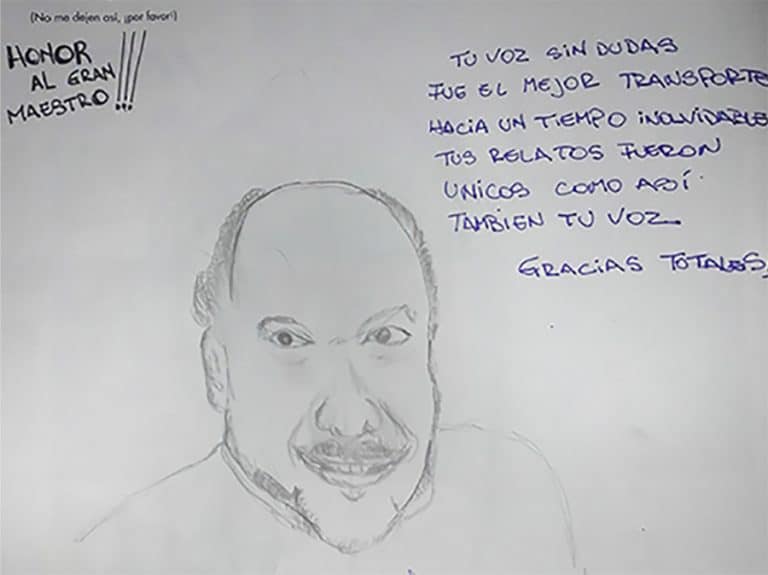 (No me dejen así, ¡por favor!)
HONOR
AL GRAN
MAESTRO!!!
TU VOZ SIN DUDAS
FUE EL MEJOR TRANSPORTE
HACIA UN TIEMPO INOLVIDABLE
TUS RELATOS FUERON
UNICOS COMO ASÍ
TAMBIEN TU VOZ
GRACIAS TOTALES,